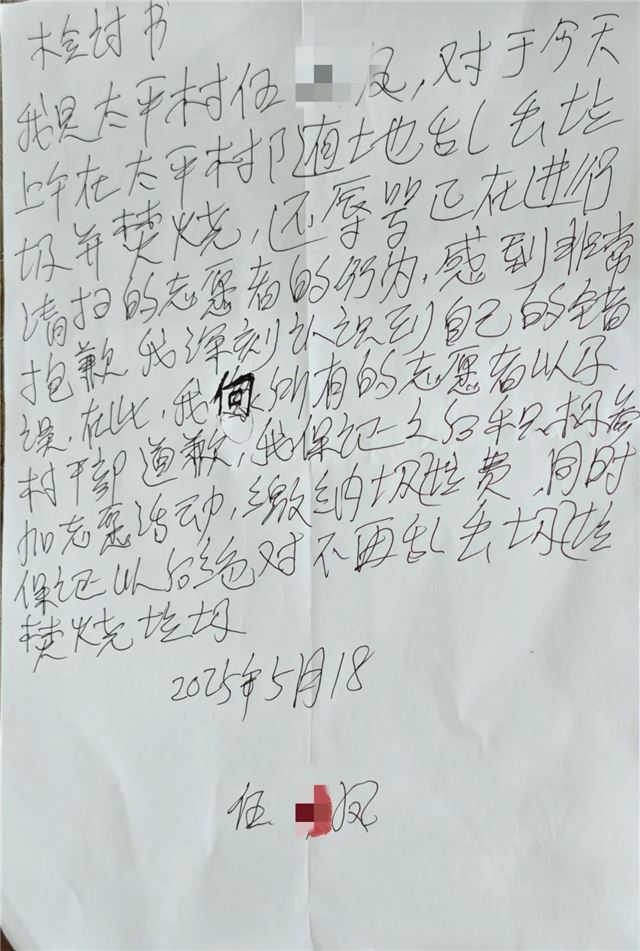 检讨书
我是太平村伍 凤，对于今天
上午在太平村随地乱丢垃
圾并焚烧，还辱骂正在进行
清扫的志愿者的行为，感到非常
抱歉我深刻认识到自己的错
误，在此，我向所有的志愿者以及
村干部道歉，我保证之后积极参
加志愿活动，缴纳圾垃费，同时
保证以后绝对不再乱丢圾垃
焚烧垃圾
2025年5月18
伍 凤